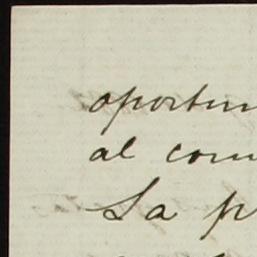 oportun
al com
La p